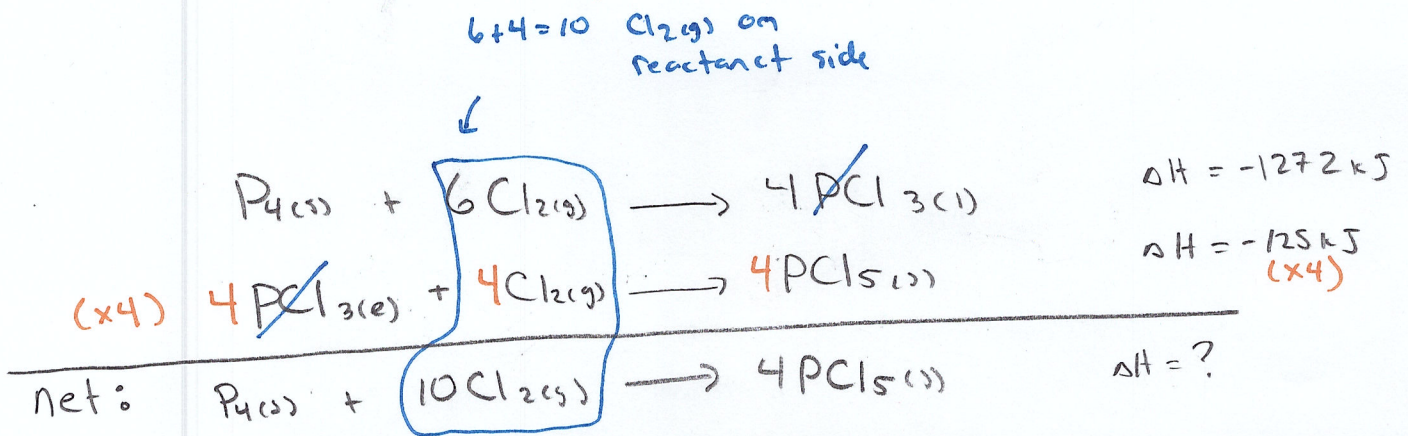 6+4=10 Cl2(g) on
reactanct side
P4(s) + 6Cl2(g) → 4PCl3(l) ΔH = -1272 kJ
(x4) 4PCl3(l) + 4Cl2(g) → 4PCl5(s) ΔH = -125 kJ
(x4)
net: P4(s) + 10Cl2(g) → 4PCl5(s) ΔH = ?